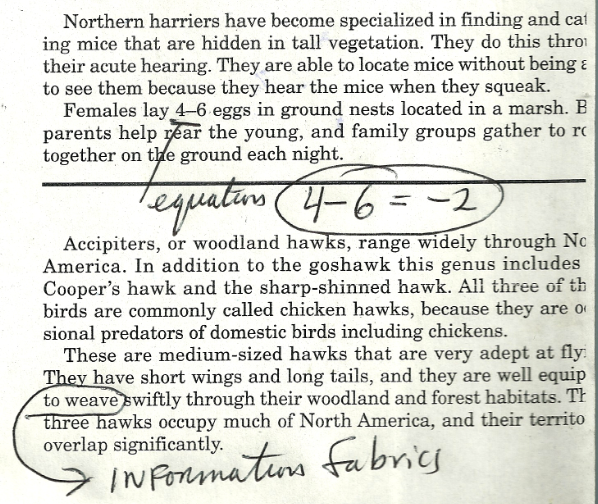 Northern harriers have become specialized in finding and cat
ing mice that are hidden in tall vegetation. They do this throu
their acute hearing. They are able to locate mice without being a
to see them because they hear the mice when they squeak.
Females lay 4–6 eggs in ground nests located in a marsh. B
parents help rear the young, and family groups gather to ro
together on the ground each night.
equations 4-6 = -2
Accipiters, or woodland hawks, range widely through No
America. In addition to the goshawk this genus includes
Cooper's hawk and the sharp-shinned hawk. All three of th
birds are commonly called chicken hawks, because they are o
sional predators of domestic birds including chickens.
These are medium-sized hawks that are very adept at fly
They have short wings and long tails, and they are well equip
to weave swiftly through their woodland and forest habitats. Th
three hawks occupy much of North America, and their territo
overlap significantly.
INFORMATION fabrics